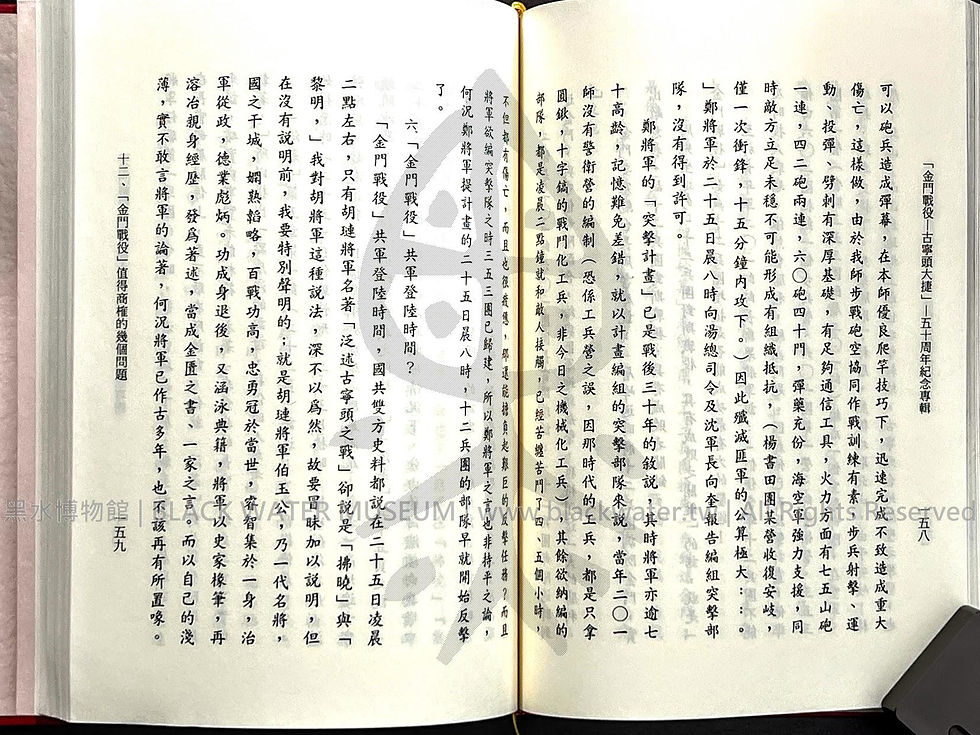 「金門戰役—古寧頭大捷」—五十周年紀念專輯
一五八
可以砲兵造成彈幕，在本師優良爬竿技巧下，迅速完成不致造成重大
傷亡，這樣做，由於我師步戰砲空協同作戰訓練有素，步兵射擊、運
動、投彈、劈刺有深厚基礎，有足夠通信工具，火力方面有七五山砲
一連，四二砲兩連，六〇砲四十門，彈藥充份，海空軍強力支援，同
時敵方立足未穩不可能形成有組織抵抗，（楊書田團某營收復安岐，
僅一次衝鋒，十五分鐘內攻下。）因此殲滅匪軍的公算極大：：。
」鄭將軍於二十五日晨八時向湯總司令及沈軍長向奎報告編組突擊部
隊，沒有得到許可。
鄭將軍的「突擊計畫」已是戰後三十年的敘說，其時將軍亦逾七
十高齡，記憶難免差錯，就以計畫編組的突擊部隊來說，當年二〇一
師沒有警衛營的編制（恐係工兵營之誤，因那時代的工兵，都是只拿
圓鍬，十字鎬的戰鬥化工兵，非今日之機械化工兵）其餘欲納編的
部隊，都是凌晨二點鐘就和敵人接觸，已經苦纏苦鬥了四、五個小時，
不但都有傷亡，而且也很疲憊，那還能擔負起艱巨的反擊任務？而且
將軍欲編突擊隊之時三五三團已歸建，所以鄭將軍之言也非持平之論，
何況鄭將軍提計畫的二十五日晨八時，十二兵團的部隊早就開始反擊
了。
六、「金門戰役」共軍登陸時間？
「金門戰役」共軍登陸時間，國共雙方史料都說在二十五日凌晨
二點左右，只有胡璉將軍名著「泛述古寧頭之戰」卻說是「拂曉」與「
黎明，」我對胡將軍這種說法，深不以為然，故要冒昧加以說明，但
在沒有說明前，我要特別聲明的；就是胡璉將軍伯玉公，乃一代名將，
國之干城，嫻熟韜略，百戰功高，忠勇冠於當世，睿智集於一身，治
軍從政，德業彪炳。功成身退後，又涵泳典籍，將軍以史家椽筆，再
溶冶親身經歷，發為著述，當成金匱之書、一家之言。而以自己的淺
薄，實不敢言將軍的論著，何況將軍已作古多年，也不該再有所置喙。
十二、「金門戰役」值得商榷的幾個問題
一五九
黑水博物館 | BLACK WATER MUSEUM | www.blackwater.tw | All Rights Reserved